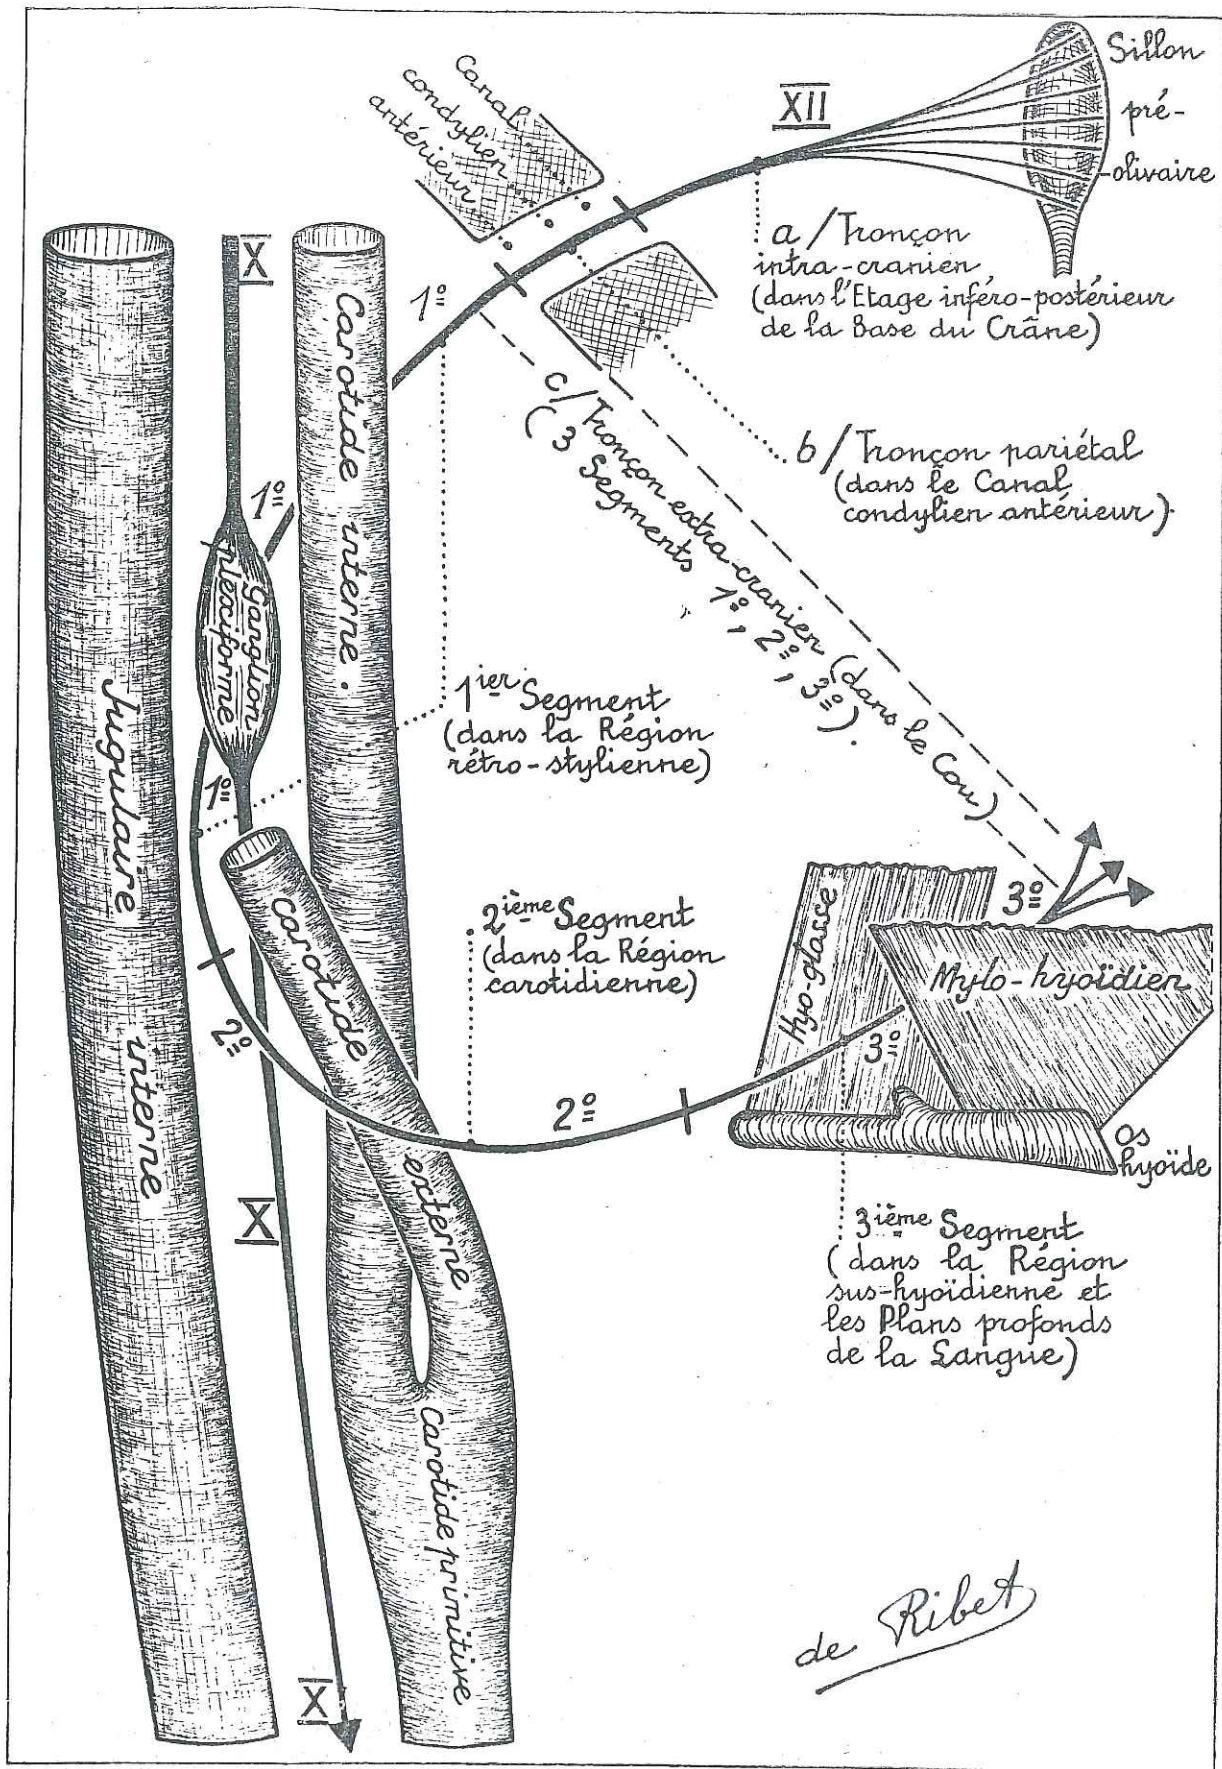 Canal
condylien
antérieur
XII
Sillon
pré-
-olivaire
a/Tronçon
intra-cranien
(dans l'Etage inféro-postérieur
de la Base du Crâne)
b/Tronçon pariétal
(dans le Canal
condylien antérieur).
c/Tronçon extra-cranien (dans le Cou)
(3 Segments 1º, 2º, 3º).
X
1º
1º
Carotide interne.
Ganglion
plexiforme
Jugulaire interne
1º
1ier Segment
(dans la Région
rétro-stylienne)
carotide externe
2ième Segment
(dans la Région
carotidienne)
2º
2º
Hyo-glosse
3º
Mylo-hyoïdien
3º
os
hyoïde
X
3ième Segment
(dans la Région
sus-hyoïdienne et
les Plans profonds
de la Langue)
carotide primitive
X
de Ribet